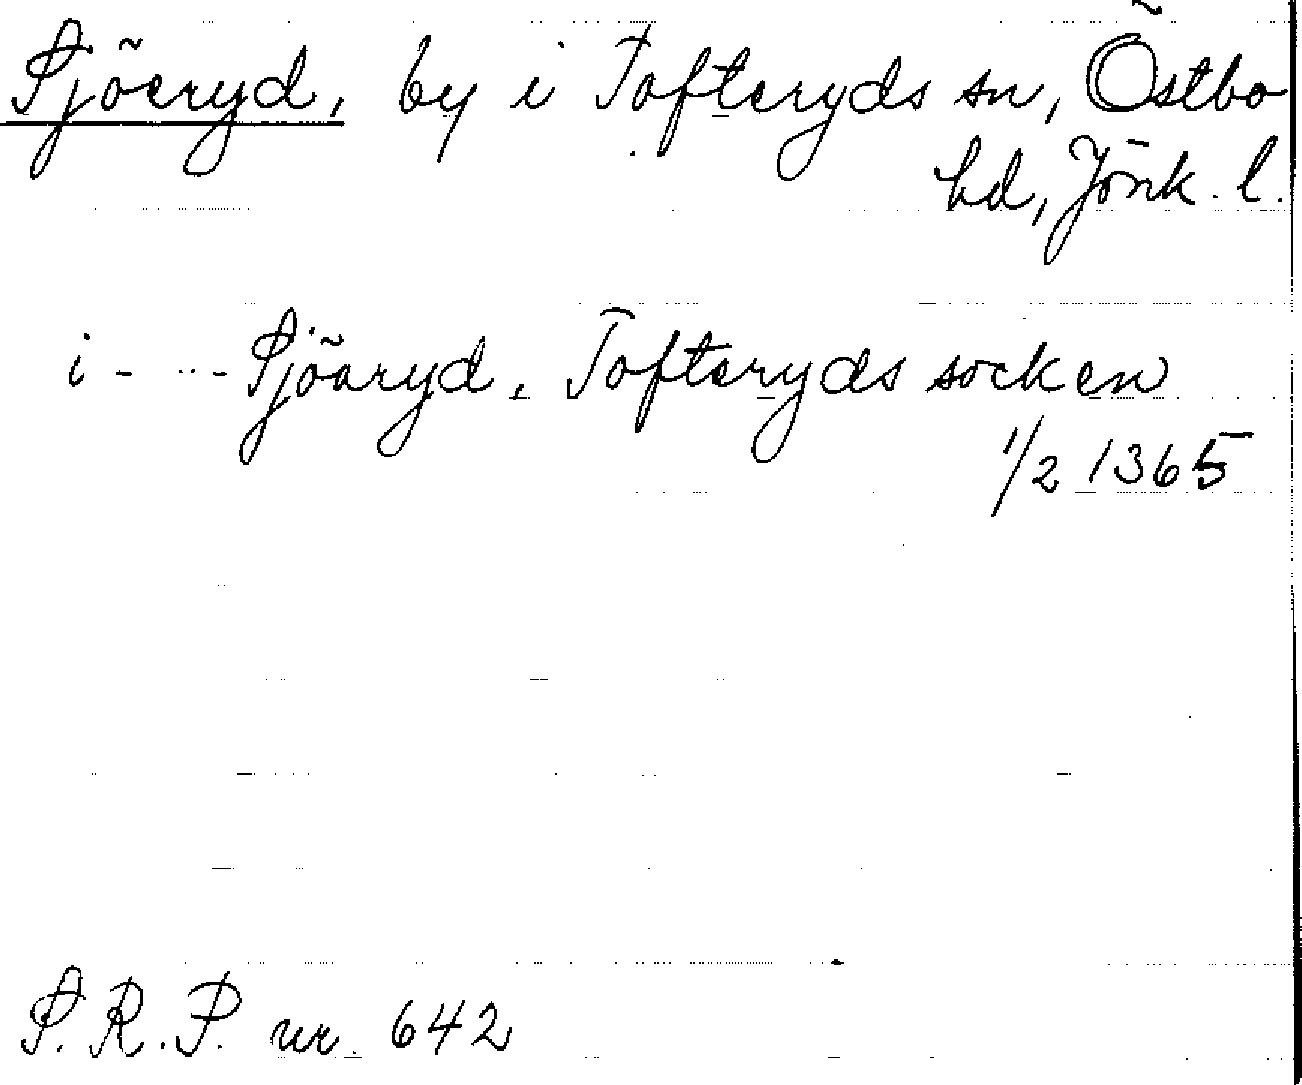 Sjöeryd, by i Tofteryds sn, Östbo
hd, Jönk. l.
i - - - Sjöaryd, Tofteryds socken
1/2 1365
S.R.P. nr. 642